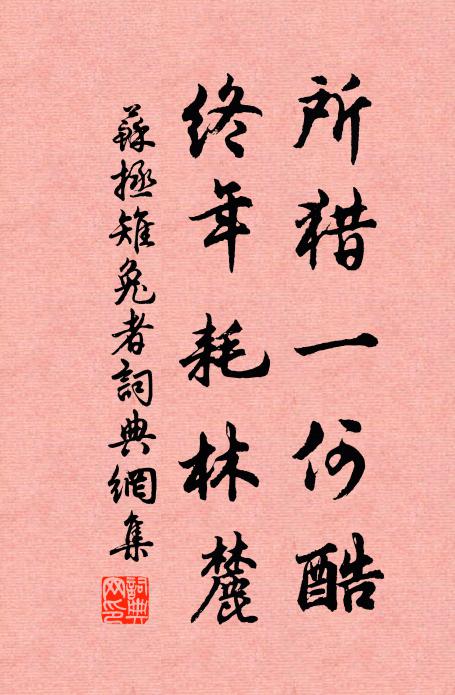 所猎一何酷
终年耗林麓
蘇拯雉兔者詞典網集
詞典网印